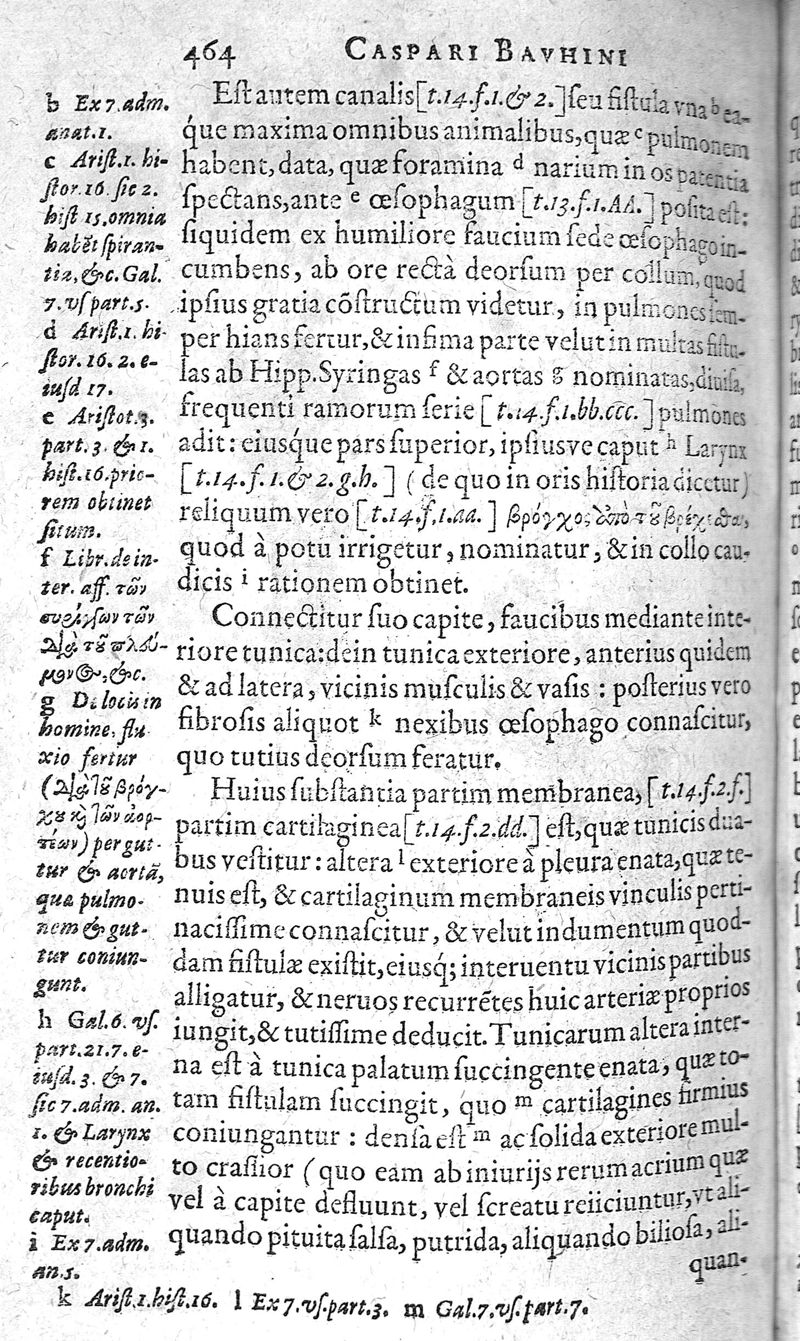 464 CASPARI BAVHINI
Eſt autem canalis [t.14.f.1.& 2.] ſeu fiſtula vna b ea-
q́ue maxima omnibus animalibus, quæ c pulmonem
habent, data, quæ foramina d narium in os patentia
ſpectans, ante e œſophagum [t.13.f.1.AA.] poſita eſt:
ſiquidem ex humiliore faucium ſede œſophago in-
cumbens, ab ore rectà deorſum per collum, quod
ipſius gratia cõſtructum videtur, in pulmones ſem-
per hians fertur, & infima parte velut in multas fiſtu-
las ab Hipp. Syringas f & aortas g nominatas, diuiſa,
frequenti ramorum ſerie [t.14.f.1.bb.ccc.] pulmones
adit: eiuſq́ue pars ſuperior, ipſiusve caput h Larynx
[t.14.f.1.& 2.g.h.] (de quo in oris hiſtoria dicetur)
reliquum vero [t.14.f.1.aa.] βρόγχος ἀπὸ τοῦ βρέχεσθαι,
quod à potu irrigetur, nominatur, & in collo cau-
dicis i rationem obtinet.
Connectitur ſuo capite, faucibus mediante inte-
riore tunica: dein tunica exteriore, anterius quidem
& ad latera, vicinis muſculis & vaſis: poſterius vero
fibroſis aliquot k nexibus œſophago connaſcitur,
quo tutius deorſum feratur.
Huius ſubſtantia partim membranea, [t.14.f.2.f.]
partim cartilaginea [t.14.f.2.dd.] eſt, quæ tunicis dua-
bus veſtitur: altera l exteriore à pleura enata, quæ te-
nuis eſt, & cartilaginum membraneis vinculis perti-
naciſſime connaſcitur, & velut indumentum quod-
dam fiſtulæ exiſtit, eiusq́; interuentu vicinis partibus
alligatur, & neruos recurrẽtes huic arteriæ proprios
iungit, & tutiſſime deducit. Tunicarum altera inter-
na eſt à tunica palatum ſuccingente enata, quæ to-
tam fiſtulam ſuccingit, quo m cartilagines firmius
coniungantur: denſa eſt m ac ſolida exteriore mul-
to craſſior (quo eam ab iniurijs rerum acrium quæ
vel à capite defluunt, vel ſcreatu reiiciuntur, vt ali-
quando pituita ſalſa, putrida, aliquando bilioſa, ali-
quan-
b Ex 7. adm.
anat. 1.
c Ariſt. 1. hi-
ſtor. 16. ſic 2.
hiſt 15. omnia
habẽt ſpiran-
tia, &c. Gal.
7. vſ part. 5.
d Ariſt. 1. hi-
ſtor. 16. 2. e-
iuſd 17.
e Ariſtot. 3.
part. 3. & 1.
hiſt. 16. prio-
rem obtinet
ſitum.
f Libr. de in-
ter. aff. τῶν
συρίγγων τῶν
διὰ τοῦ πλεύ-
μονος, &c.
g De locis in
homine, flu-
xio fertur
(διὰ τοῦ βρόγ-
χου καὶ τῶν ἀορ-
τέων) per gut-
tur & aortã,
qua pulmo-
nem & gut-
tur coniun-
gunt.
h Gal. 6. vſ.
part. 21. 7. e-
iuſd. 3. & 7.
ſic 7. adm. an.
1. & Larynx
& recentio-
ribus bronchi
caput.
i Ex 7. adm.
an. 5.
k Ariſt. 1. hiſt. 16. l Ex 7. vſ. part. 3. m Gal. 7. vſ. part. 7.